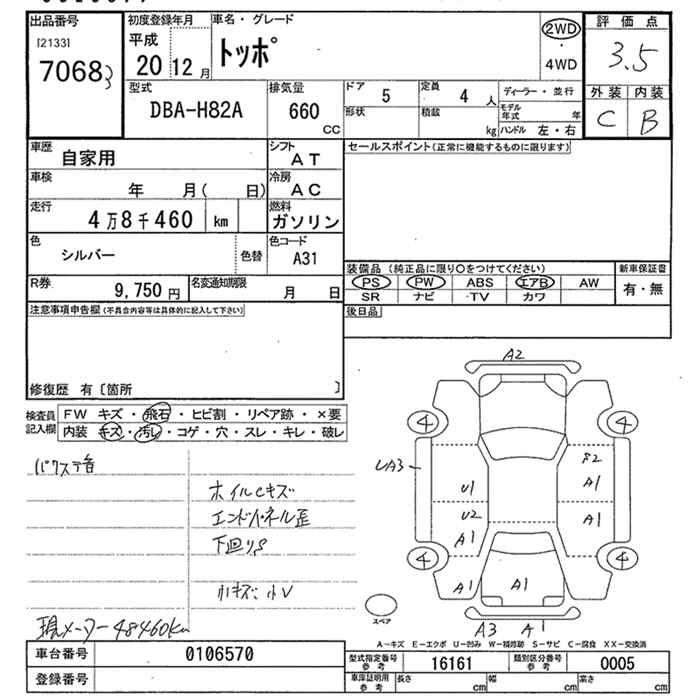 出品番号
[2133]
7068
初度登録年月
平成
20 12 月
車名・グレード
トッポ
2WD
・
4WD
評価点
3.5
外装 内装
C B
型式
DBA-H82A
排気量
660
CC
ドア 5
定員 4 人
形状
積載 kg
ディーラー・並行
モデル年式 年
ハンドル 左・右
車歴
自家用
シフト
AT
車検
年 月( 日)
冷房
AC
走行
4万8千460 km
燃料
ガソリン
色
シルバー
色替
色コード
A31
R券
9,750 円
名変通知期限
月 日
セールスポイント(正常に機能するものに限ります)
装備品 (純正品に限り○をつけてください)
新車保証書
PS PW ABS エアB AW
有・無
SR ナビ ・TV カワ
後日品
注意事項申告欄(不具合内容等は具体的に記入して下さい)
修復歴 有〔箇所 〕
検査員
記入欄
FW キズ・飛石・ヒビ割・リペア跡・×要
内装 キズ・汚レ・コゲ・穴・スレ・キレ・破レ
ホイルCキズ
エンドパネル歪
下回りS
小キズ 小V
現メーター48460km
A2
4
4
UA3
S2
U1
A1
U2
A1
A1
4
4
A1
A1
A1
スペア
A3 A1
A―キズ E―エクボ U―凹み W―補修跡 S―サビ C―腐食 XX―交換済
車台番号
0106570
登録番号
型式指定番号
参考
16161
類別区分番号
参考
0005
車庫証明用
参考
長さ cm
幅 cm
高さ cm